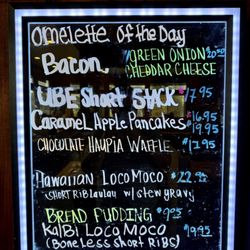 Omelette Of the Day
Bacon, GREEN ONION 20.50
CHEDDAR CHEESE
UBE Short Stack $17.95
Caramel Apple Pancakes $16.95
$19.95
CHOCOLATE HAUPIA WAFFLE $17.95
HAWAIIAN LOCO MOCO $22.95
(SHORT RIB laulau w/ stew gravy
BREAD PUDDING $9.25
KALBI LOCO MOCO $19.95
(BONELESS SHORT RIBS)